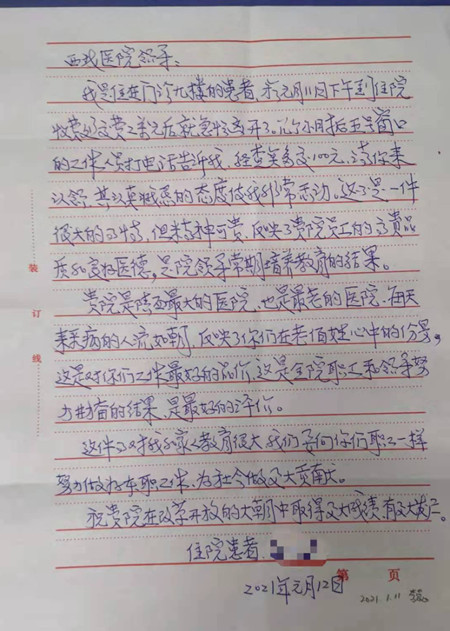 西北医院领导：
我是住在门诊九楼的患者，于元月11日下午到住院
收费处交费之后就急忙离开了。几个小时后五号窗口
的工作人员打电话告诉我，经查复多交100元，请你来
认领，其认真负责的态度使我非常感动。这不是一件
很大的事情，但精神可贵，反映了贵院员工的高贵品
质和高尚医德，是院领导常期培养教育的结果。
贵院是陕西最大的医院，也是最老的医院，每天
来看病的人流如朝，反映了你们在老百姓心中的份量，
这是对你们工作最好的评价，这是全院职工和领导努
力的结果，是最好的评价。
这件事对我的家人教育很大我们要向你们职工一样
努力做好本职工作，为社会做更大贡献。
祝贵院在改革开放的大朝中取得更大成绩，有更大发展。
住院患者：
2021年元月12日
第 页
2021.1.11
装
订
线